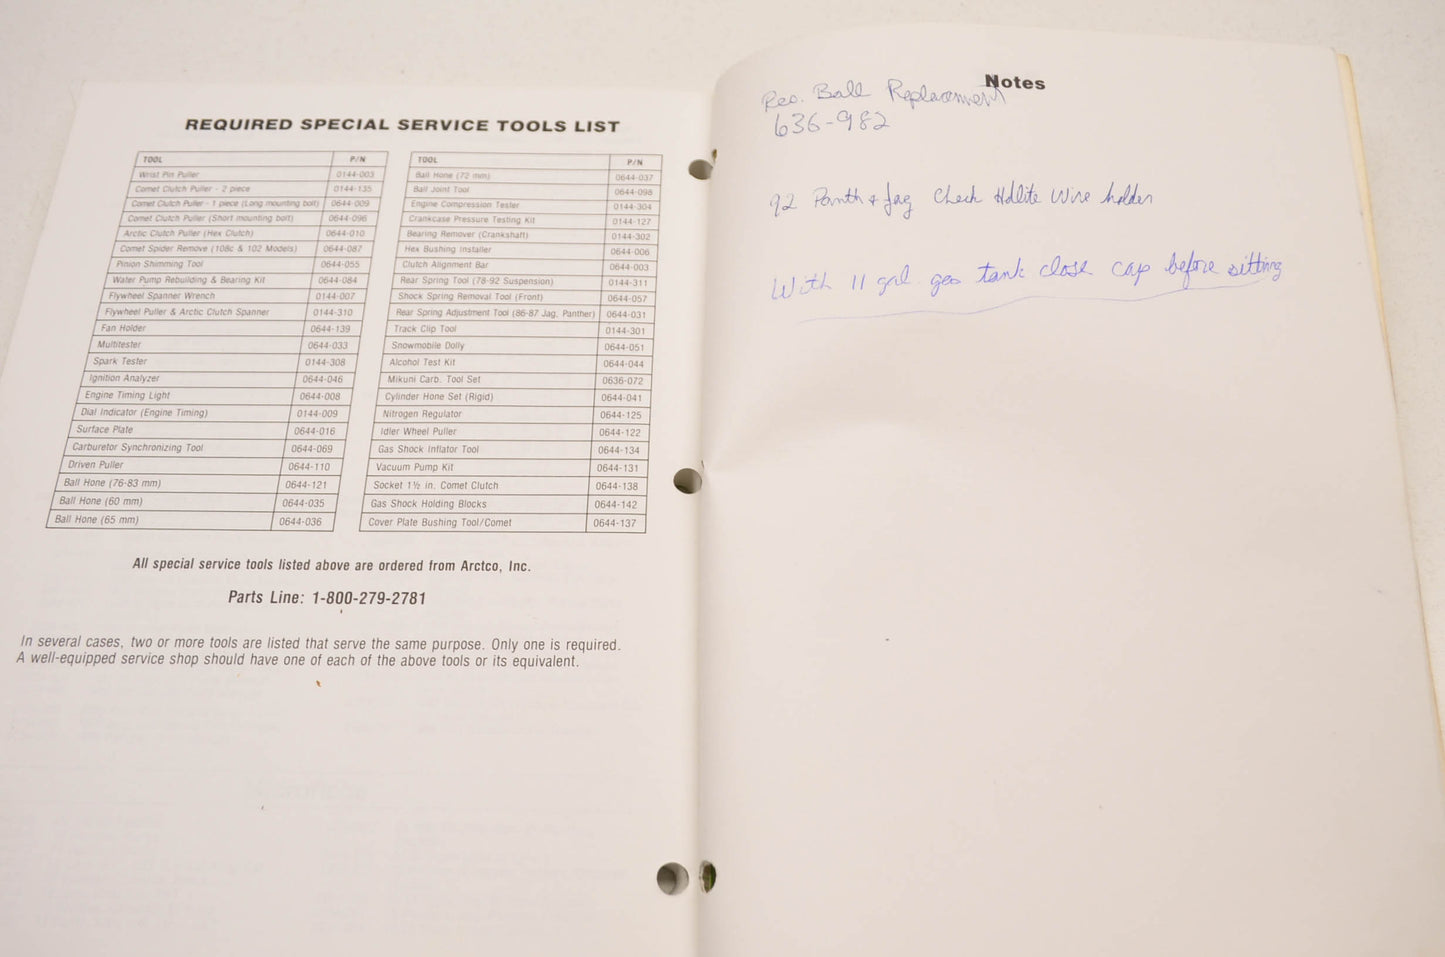 REQUIRED SPECIAL SERVICE TOOLS LIST
TOOL P/N
Wrist Pin Puller 0144-003
Comet Clutch Puller - 2 piece 0144-135
Comet Clutch Puller - 1 piece (Long mounting bolt) 0644-009
Comet Clutch Puller (Short mounting bolt) 0644-096
Arctic Clutch Puller (Hex Clutch) 0644-010
Comet Spider Remove (108c & 102 Models) 0644-087
Pinion Shimming Tool 0644-055
Water Pump Rebuilding & Bearing Kit 0644-084
Flywheel Spanner Wrench 0144-007
Flywheel Puller & Arctic Clutch Spanner 0144-310
Fan Holder 0644-139
Multitester 0644-033
Spark Tester 0144-308
Ignition Analyzer 0644-046
Engine Timing Light 0644-008
Dial Indicator (Engine Timing) 0144-009
Surface Plate 0644-016
Carburetor Synchronizing Tool 0644-069
Driven Puller 0644-110
Ball Hone (76-83 mm) 0644-121
Ball Hone (60 mm) 0644-035
Ball Hone (65 mm) 0644-036
TOOL P/N
Ball Hone (72 mm) 0644-037
Ball Joint Tool 0644-098
Engine Compression Tester 0144-304
Crankcase Pressure Testing Kit 0144-127
Bearing Remover (Crankshaft) 0144-302
Hex Bushing Installer 0644-006
Clutch Alignment Bar 0644-003
Rear Spring Tool (78-92 Suspension) 0144-311
Shock Spring Removal Tool (Front) 0644-057
Rear Spring Adjustment Tool (86-87 Jag, Panther) 0644-031
Track Clip Tool 0144-301
Snowmobile Dolly 0644-051
Alcohol Test Kit 0644-044
Mikuni Carb. Tool Set 0636-072
Cylinder Hone Set (Rigid) 0644-041
Nitrogen Regulator 0644-125
Idler Wheel Puller 0644-122
Gas Shock Inflator Tool 0644-134
Vacuum Pump Kit 0644-131
Socket 1½ in. Comet Clutch 0644-138
Gas Shock Holding Blocks 0644-142
Cover Plate Bushing Tool/Comet 0644-137
All special service tools listed above are ordered from Arctco, Inc.
Parts Line: 1-800-279-2781
In several cases, two or more tools are listed that serve the same purpose. Only one is required.
A well-equipped service shop should have one of each of the above tools or its equivalent.
Notes
Ball Replacement
636-982
92 Panth & Jag Check Hdlite Wire holder
With 11 gal. gas tank close cap before sitting